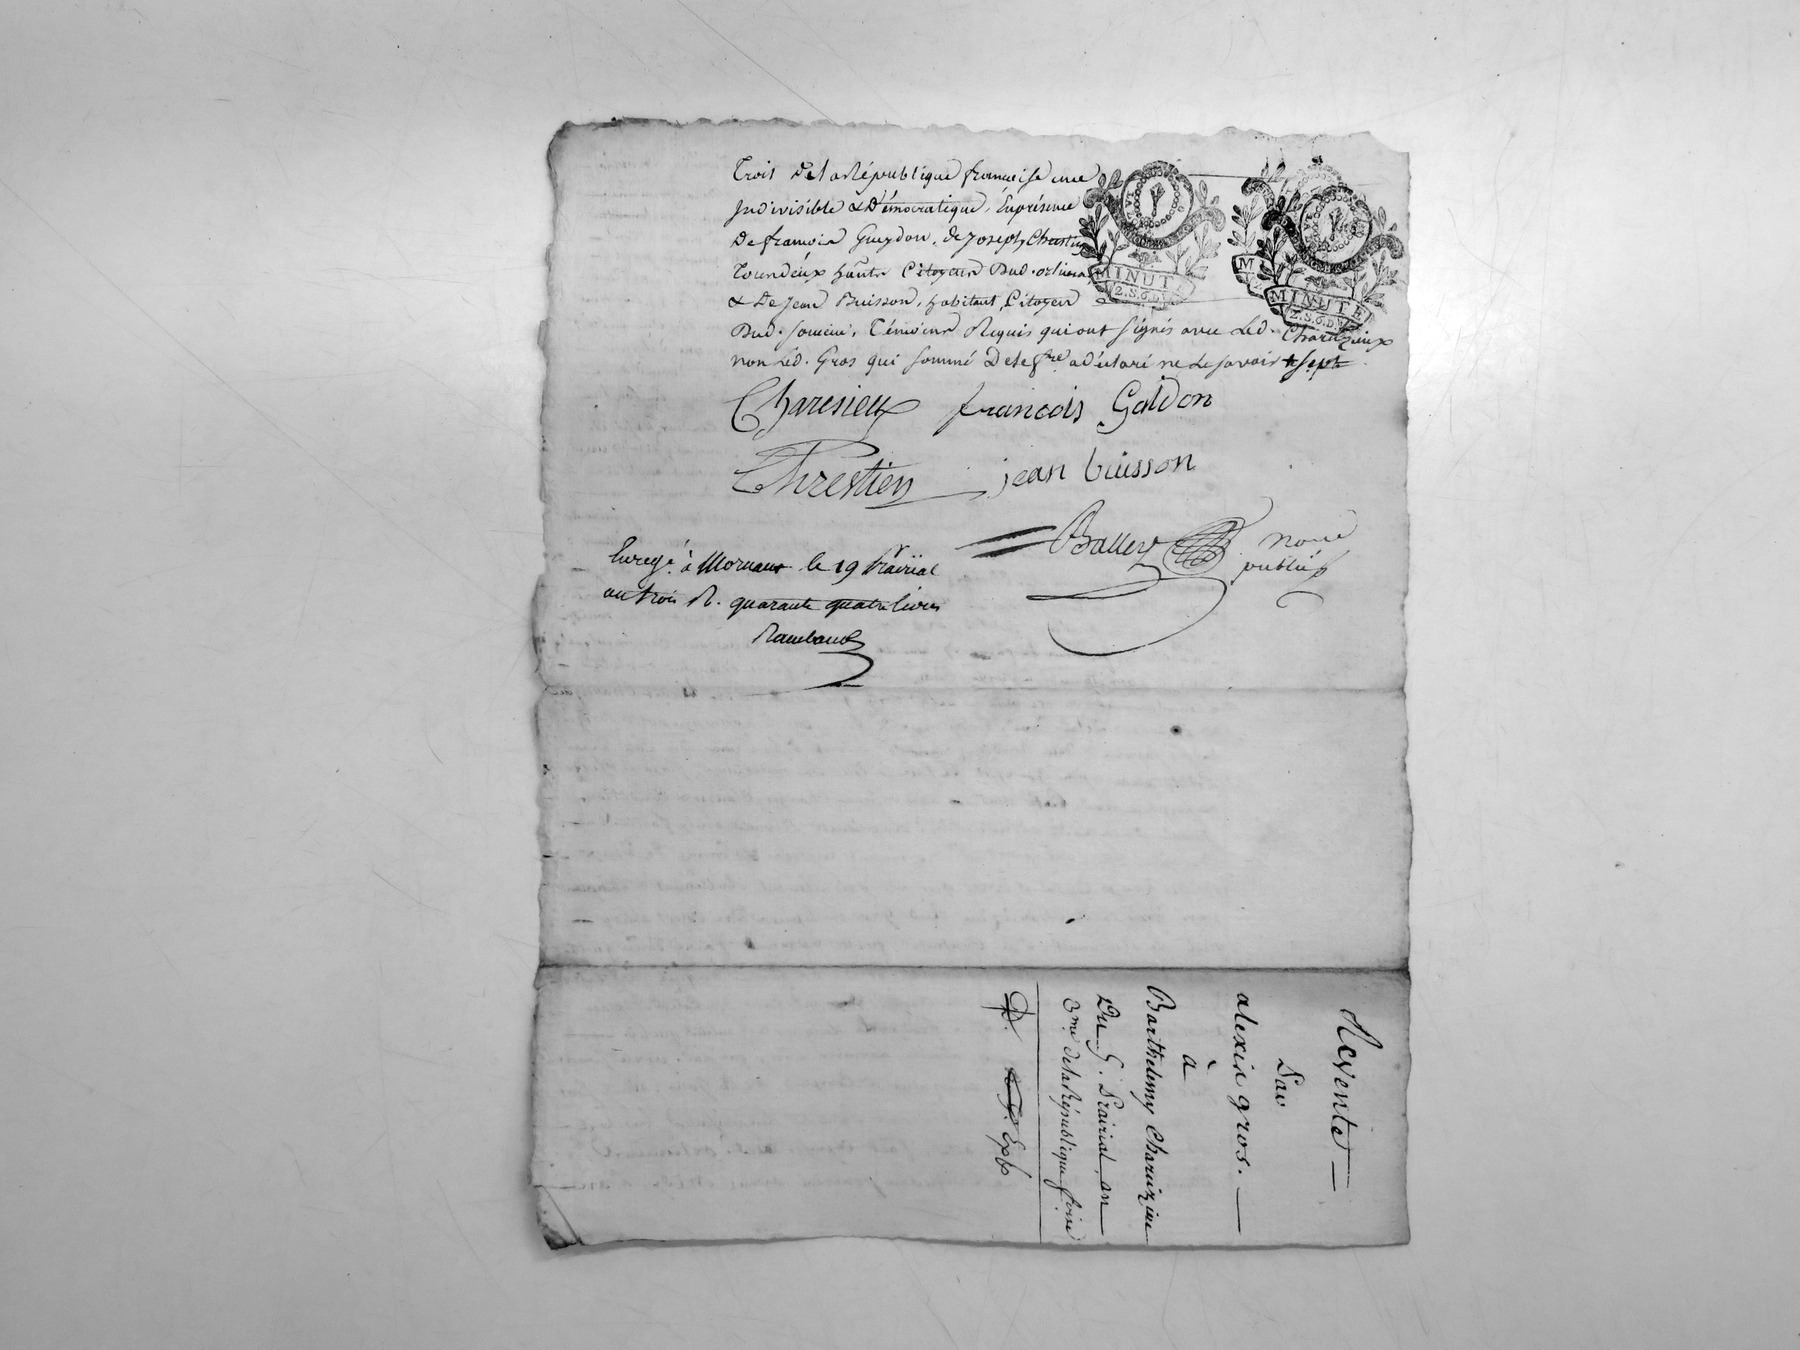 Trois De la République francaise une
Indivisible & Démocratique, Enprésence
De francois Gueydon, de Joseph Chrestien
Tous deux habts Citoyens Dud. orlienas
& De Jean Buisson, habitant, Citoyen
Dud. soucieu, Témoins Requis qui ont signés avec Led. Charezieux
non Led. Gros qui sommé De le fre a déclaré ne Le savoir
Charesieux francois Galdon
Chrestien jean buisson
Balley nore
public
Enregé à Mornant le 19 Prairial
an trois R. quarante quatre livres
Rambaud
MINUTE
2.S.6.D
M
MINUTE
2.S.6.D
Revente
Par
alexis gros.
à
Barthelemy Charezieu
Du 5. Prairial an
3me de la République foise
Exp